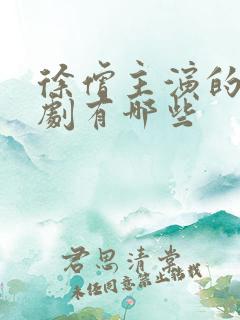 徐僧主演的
劇有哪些
君思清棠
未经同意禁止转载